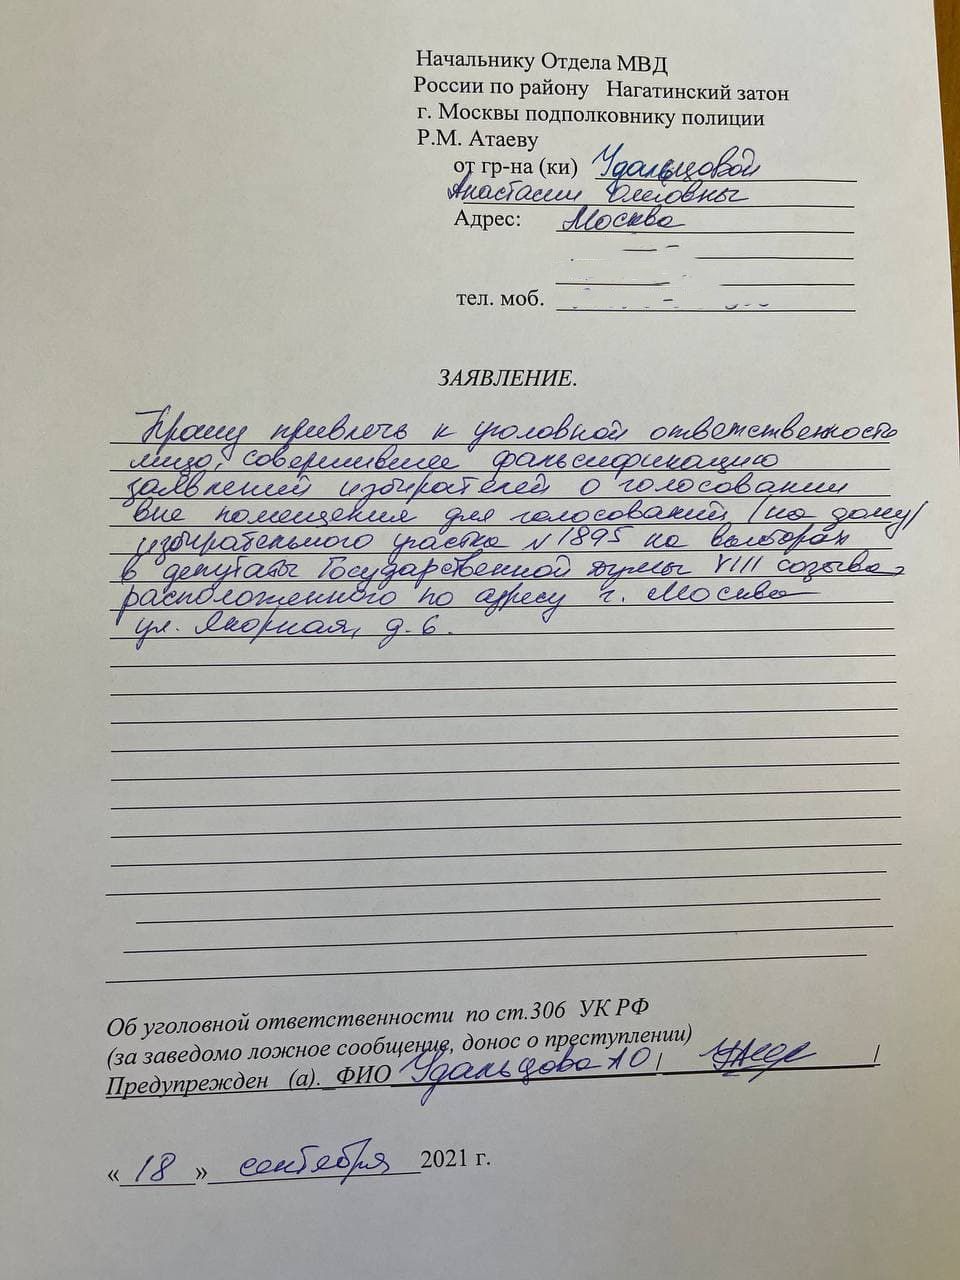 Начальнику Отдела МВД
России по району Нагатинский затон
г. Москвы подполковнику полиции
Р.М. Атаеву
от гр-на (ки) Удальцовой
Анастасии Олеговны
Адрес: Москва
тел. моб.
ЗАЯВЛЕНИЕ.
Прошу привлечь к уголовной ответственность
лицо, совершившее фальсификацию
заявлений избирателей о голосовании
вне помещения для голосований, (на дому)
избирательного участка N 1895 на выборах
в депутаты Государственной думы VIII созыва,
расположенного по адресу г. Москва
ул. Якорная, д. 6.
Об уголовной ответственности по ст.306 УК РФ
(за заведомо ложное сообщение, донос о преступлении)
Предупрежден (а). ФИО Удальцова А О / /
« 18 » сентября 2021 г.